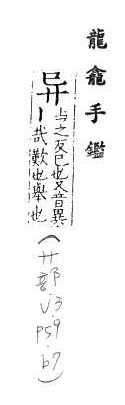 龍龕手鑑
异
与之反已也又音異
丨哉歎也舉也
(廾部.V.3.P59.b7)